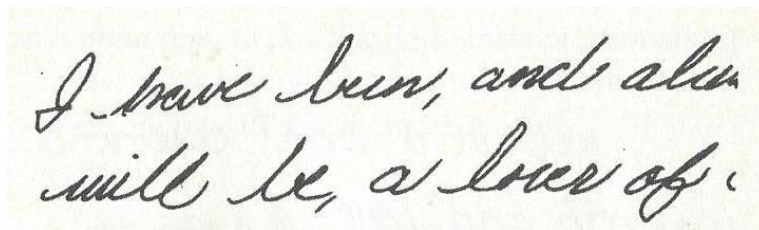 I have been, and alw
will be, a lover of